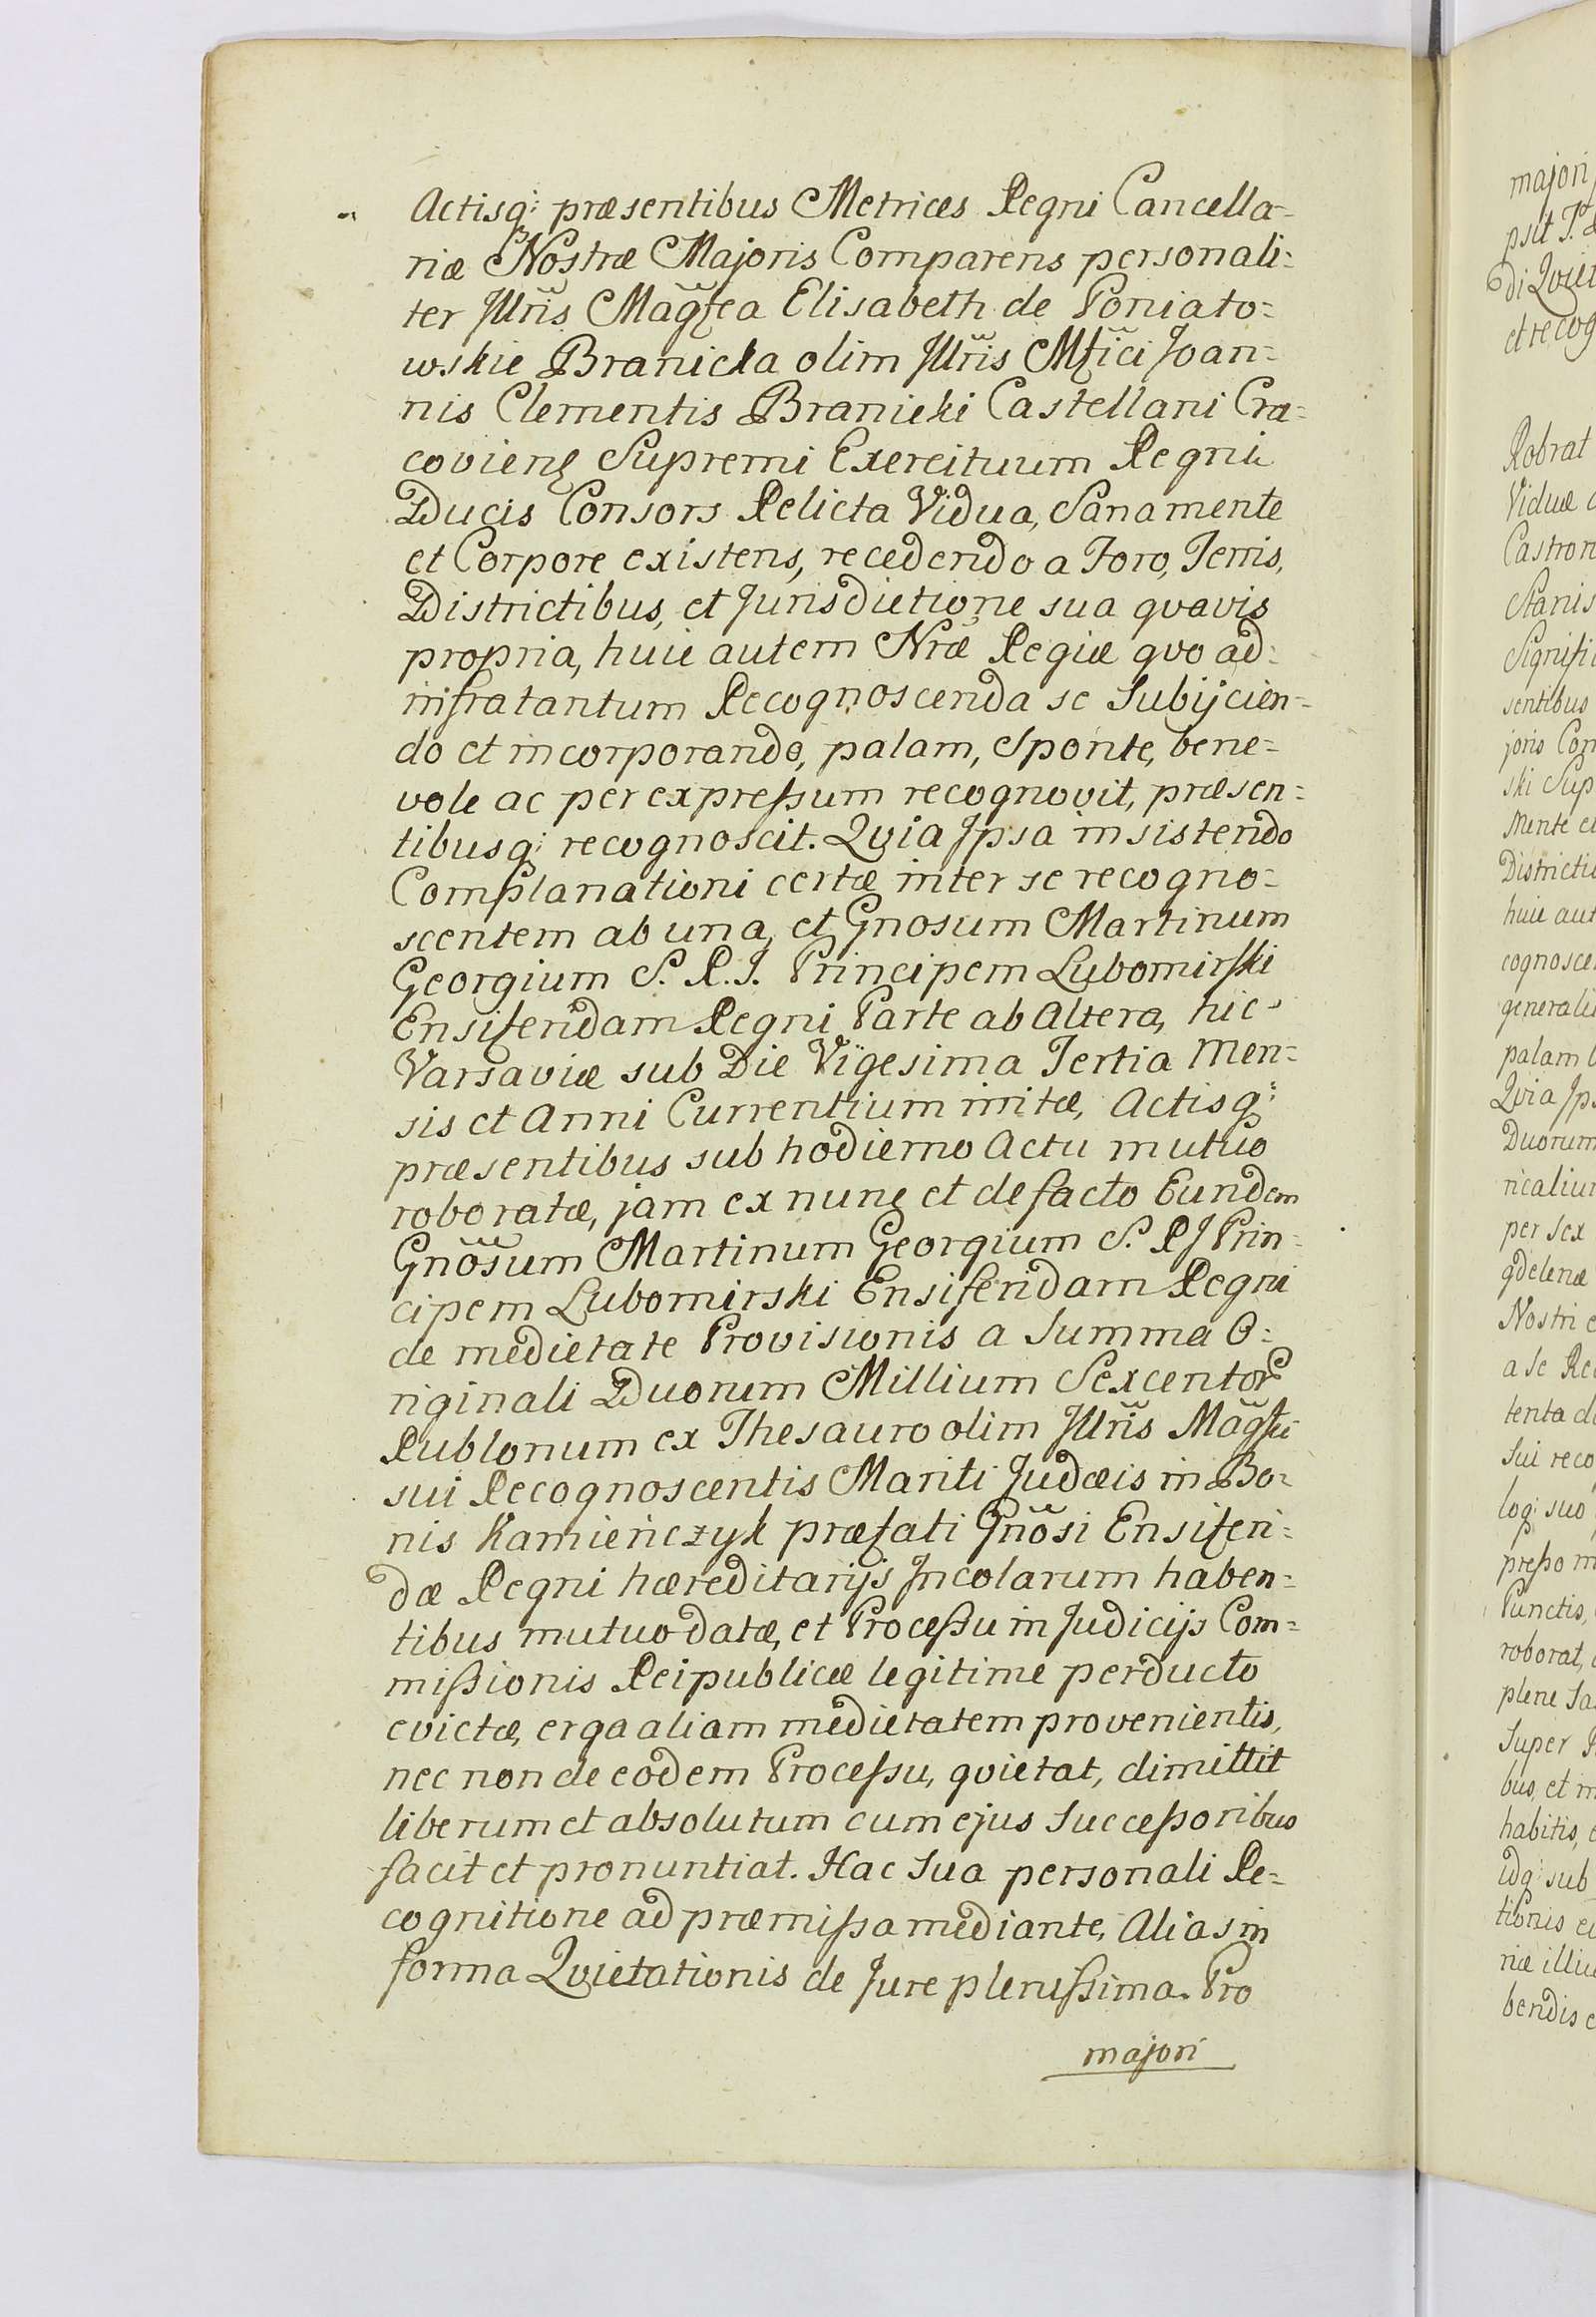 Actisq: præsentibus Metrices Regni Cancella-
riæ Nostræ Majoris Comparens personali=
ter Jllris Magfca Elisabeth de Poniato=
wskie Branicka olim Jllris Mfici Joan=
nis Clementis Branicki Castellani Cra=
coviens Supremi Exercituum Regni
Ducis Consors Relicta Vidua, Sana mente
et Corpore existens, recedendo a Foro, Terris,
Districtibus, et Jurisdictione sua qvavis
propria, huic autem Nræ Regiæ qvo ad=
infra tantum Recognoscenda se Subijcien=
do et incorporando, palam, Sponte, bene=
vole ac per expressum recognovit, præsen=
tibusq: recognoscit. Qvia Jpsa insistendo
Complanationi certæ inter se recogno=
scentem ab una, et Gnosum Martinum
Georgium S. R. J. Principem Lubomirski
Ensiferidam Regni Parte ab Altera, hic
Varsaviæ sub Die Vigesima Tertia Men=
sis et Anni Currentium initæ, Actisq:
præsentibus sub hodierno Actu mutuo
roboratæ, jam ex nunc et de facto Eundem
Gnosum Martinum Georgium S. R J Prin=
cipem Lubomirski Ensiferidam Regni
de medietate Provisionis a Summa O=
riginali Duorum Millium Sexcentor
Rublonum ex Thesauro olim Jllris Magfci
sui Recognoscentis Mariti Judæis in Bo=
nis Kamieńczyk præfati Gnosi Ensiferi=
dæ Regni hæreditarijs Jncolarum haben=
tibus mutuo datæ, et Processu in Judicijs Com=
missionis Reipublicæ legitime perducto
evictæ, erga aliam medietatem provenientis,
nec non de eodem Processu, qvietat, dimittit
liberum et absolutum cum ejus Successoribus
facit et pronuntiat. Hac Sua personali Re=
cognitione ad præmissa mediante, Alias in
forma Qvietationis de Jure plenissima. Pro
majori
majori
psit
di Qviet
et recog
Robrat
Viduæ
Castron
Stanis
Signifi
sentibus
joris Com
ski Sup
Mente et
Districti
huic aut
cognosce
generali
palam
Qvia Jps
Duorum
ricaliun
per Sex
gdelenæ
Nostri
a Se Re
tenta
Sui reco
log: suo
presso
Punctis,
roborat,
plene Sa
Super
bus, et
habitis,
idq: sub
tionis
riæ illiu
bendis